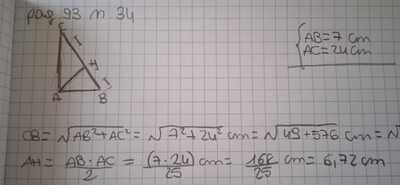 pag 93 n 34
C
H
A B
AB=7 cm
AC=24 cm
CB= √AB²+AC² = √7²+24² cm= √49+576 cm= √
AH= AB·AC/2 = (7·24)/25 cm= 168/25 cm= 6,72 cm